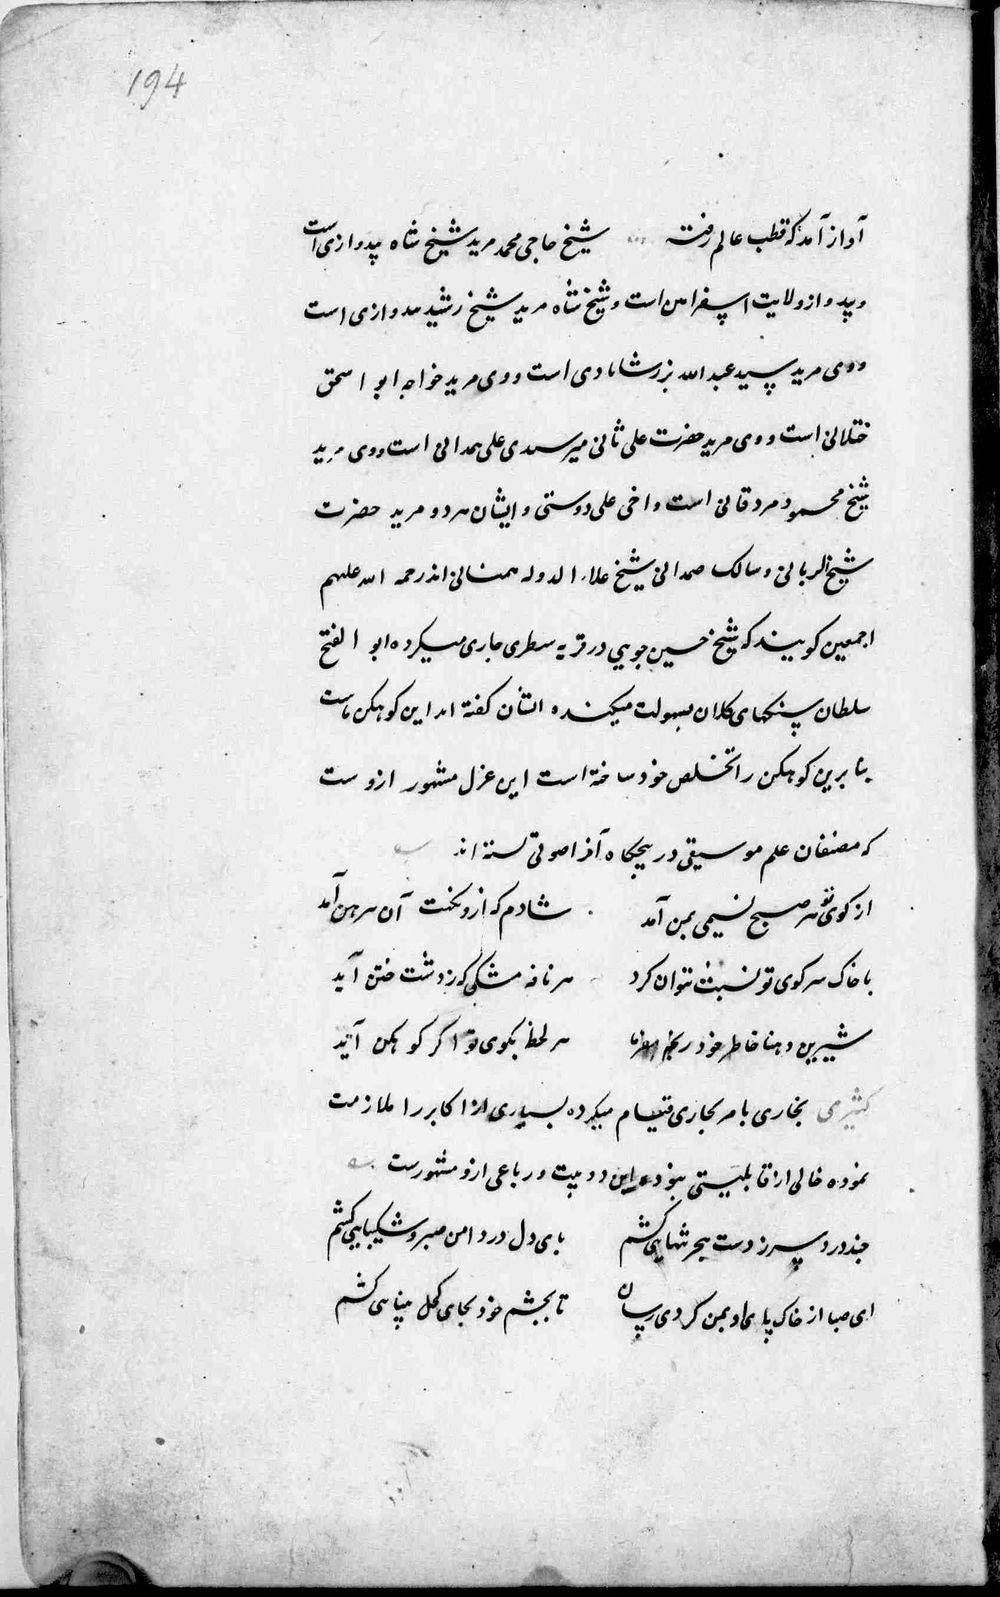 194
آواز آمد که قطب عالم رفت شیخ حاجی محمد مرید شیخ شاه پیدوازی است
و پیدواز ولایت اسفراین است و شیخ شاه مرید شیخ رشید بیدوازی است
و وی مرید سید عبد الله بزرشابادی است و وی مرید خواجه ابو اسحق
ختلانی است و وی مرید حضرت علی ثانی میر سیدی علی همدانی است و وی مرید
شیخ محمود مزدقانی است و اخی علی دوستی و ایشان هر دو مرید حضرت
شیخ الربانی و سالک صمدانی شیخ علاء الدوله سمنانی اند رحمه الله علیهم
اجمعین کویند که شیخ حسین جویی در قریه سطری جاری میکرده ابو الفتح
سلطان سنکهای کلان بسهولت میکنده ایشان کفته اند این کوهکن ماست
بنا برین کوهکن را تخلص خود ساخته است این غزل مشهور ازوست
که مصنفان علم موسیقی در پنجکاه آنرا صوتی بسته اند
از کوی تو هر صبح نسیمی بمن آمد شادم که ازو نکهت آن پیرهن آمد
با خاک سر کوی تو نسبت نتوان کرد هر نافه مشکی که ز دشت ختن آید
شیرین دهنا خاطر خود رنجه هر لحظه بکوی تو اگر کوهکن آید
کثیری بخاری بامر بخاری قیام میکرده بسیاری از اکابر را ملازمت
نموده خالی از قابلیتی نبوده این دو بیت و رباعی ازو مشهورست
چند درد سر ز دست هجر تنهایی کشم پای دل در دامن صبر و شکیبایی کشم
ای صبا از خاک پای او بمن کردی رسان تا بچشم خود بجای کحل بینایی کشم